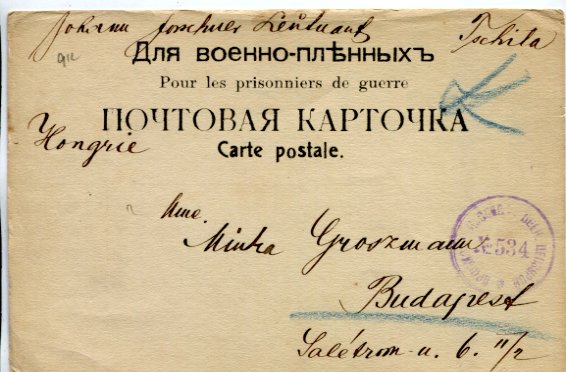 Johann Forschner Lieutnant Tschita
Для военно-плѣнныхъ
Pour les prisonniers de guerre
ПОЧТОВАЯ КАРТОЧКА
Hongrie
Carte postale.
Mme.
Minka Groszmann
№ 534
Budapest
Salétrom-u. 6. II/2